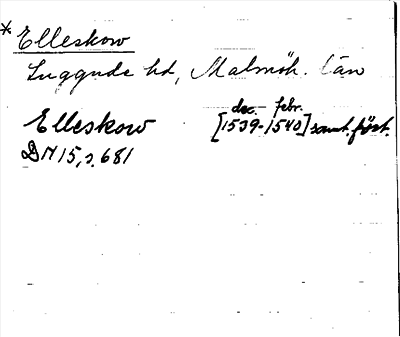 * Elleskow
Luggude hd, Malmöh. län
Elleskow [1539-1540] samt. fört.
dec.- febr.
DM 15, s. 681